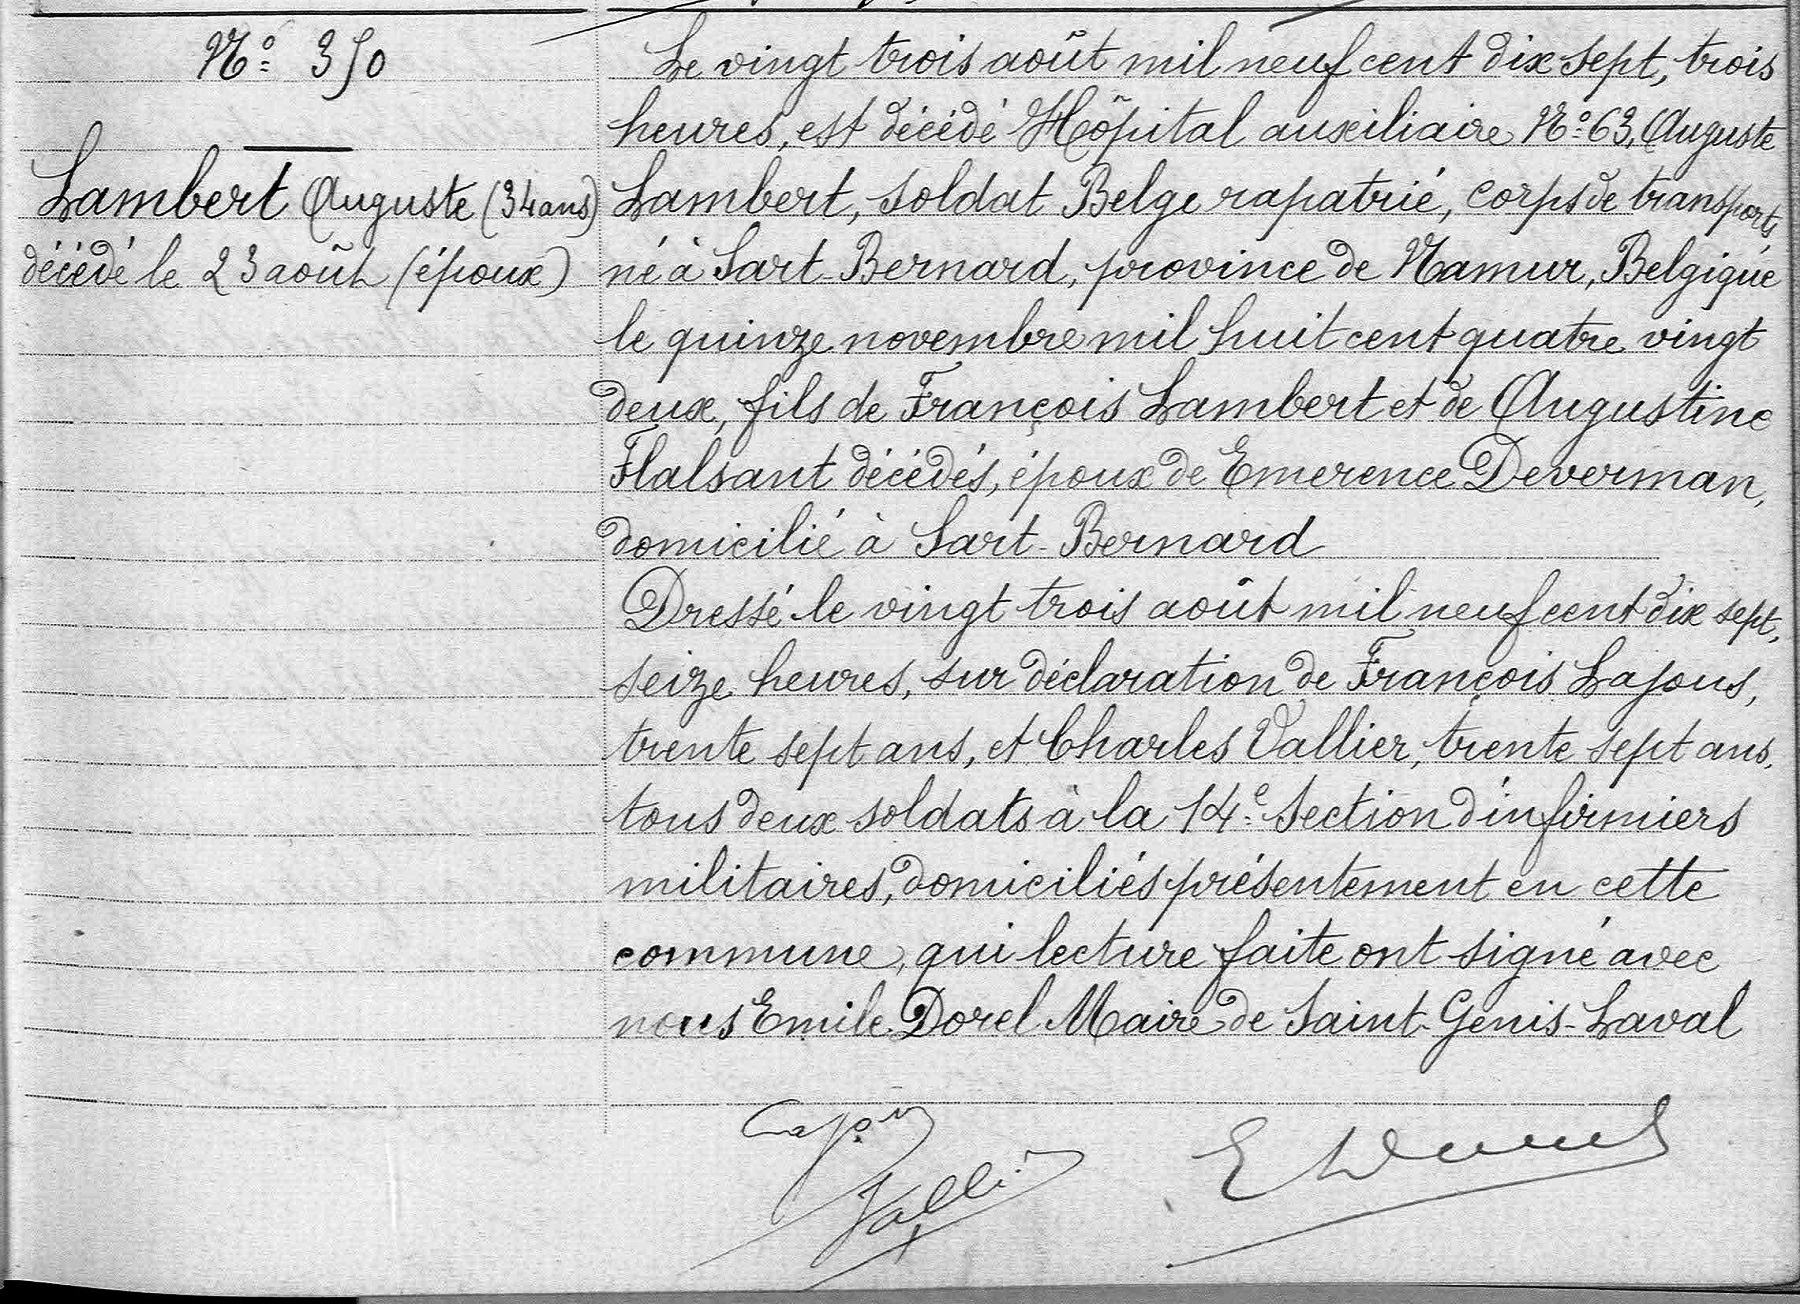 N° 350
Lambert Auguste (34 ans)
décédé le 23 août (époux)
Le vingt trois août mil neuf cent dix-sept, trois
heures, est décédé Hôpital auxiliaire N° 63, Auguste
Lambert, soldat Belge rapatrié, corps de transports
né à Sart-Bernard, province de Namur, Belgique
le quinze novembre mil huit cent quatre vingt
deux, fils de François Lambert et de Augustine
Flalsant décédés, époux de Emerence Deverman,
domicilié à Sart-Bernard
Dressé le vingt trois août mil neuf cent dix sept,
seize heures, sur déclaration de François Lajous,
trente sept ans, et Charles Vallier, trente sept ans,
tous deux soldats à la 14e Section d'infirmiers
militaires, domiciliés présentement en cette
commune, qui lecture faite ont signé avec
nous Emile Dorel Maire de Saint-Genis-Laval